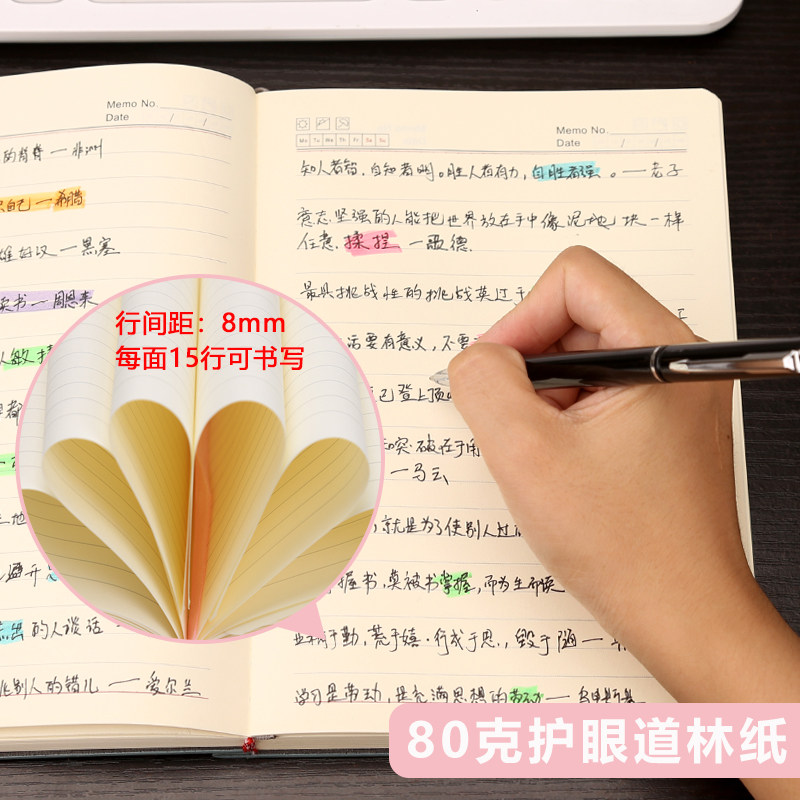 Memo No.
Date / /
的脊脊 — 非洲
自己 — 希腊
雄好汉 — 黑塞
读书 — 周恩来
人敏
都
地
避开
的人谈话
别人的错儿 — 爱尔兰
Memo No.
Date / /
Mo Tu We Th Fr Sa Su
知人者智,自知者明。胜人者有力,自胜者强。 — 老子
意志坚强的人能把世界放在手中像泥地块一样
任意揉捏 — 歌德.
最具挑战性的挑战莫过于
活要有意义,不要
己登上顶
和突破在于用
— 马云
就是为了使别人过
握书,莫被书掌握,而为生而读
于勤,荒于嬉·行成于思,毁于随 —
学习是劳动,是充满思想的劳动 — 乌申斯基
行间距:8mm
每面15行可书写
80克护眼道林纸